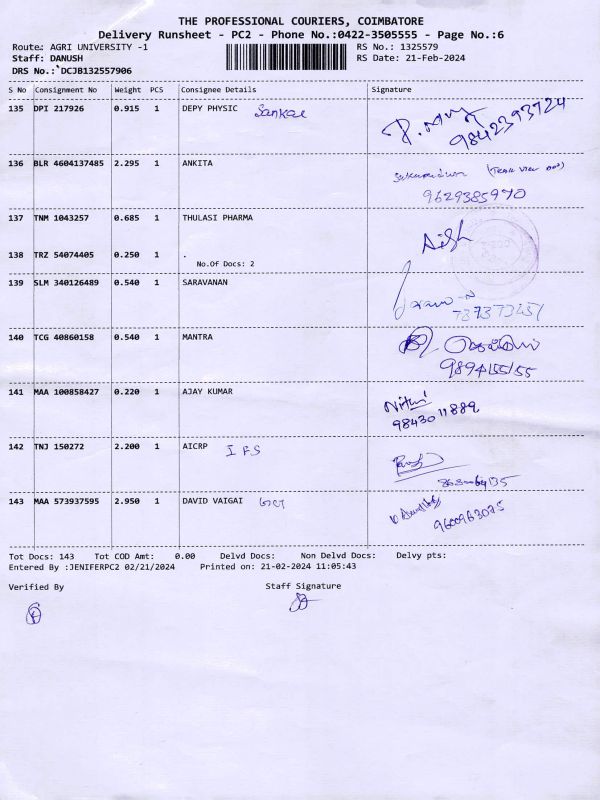 THE PROFESSIONAL COURIERS, COIMBATORE
Delivery Runsheet - PC2 - Phone No.:0422-3505555 - Page No.:6
Route: AGRI UNIVERSITY -1 RS No.: 1325579
Staff: DANUSH RS Date: 21-Feb-2024
DRS No.: DCJB132557906
S No Consignment No Weight PCS Consignee Details Signature
135 DPI 217926 0.915 1 DEPY PHYSIC Sankar
9842393724
136 BLR 4604137485 2.295 1 ANKITA
9629385970
137 TNM 1043257 0.685 1 THULASI PHARMA
138 TRZ 54074405 0.250 1 .
No.Of Docs: 2
139 SLM 340126489 0.540 1 SARAVANAN
140 TCG 40860158 0.540 1 MANTRA
9894155155
141 MAA 100858427 0.220 1 AJAY KUMAR
9843011889
142 TNJ 150272 2.200 1 AICRP IFS
143 MAA 573937595 2.950 1 DAVID VAIGAI
9600963075
Tot Docs: 143 Tot COD Amt: 0.00 Delvd Docs: Non Delvd Docs: Delvy pts:
Entered By :JENIFERPC2 02/21/2024 Printed on: 21-02-2024 11:05:43
Verified By Staff Signature